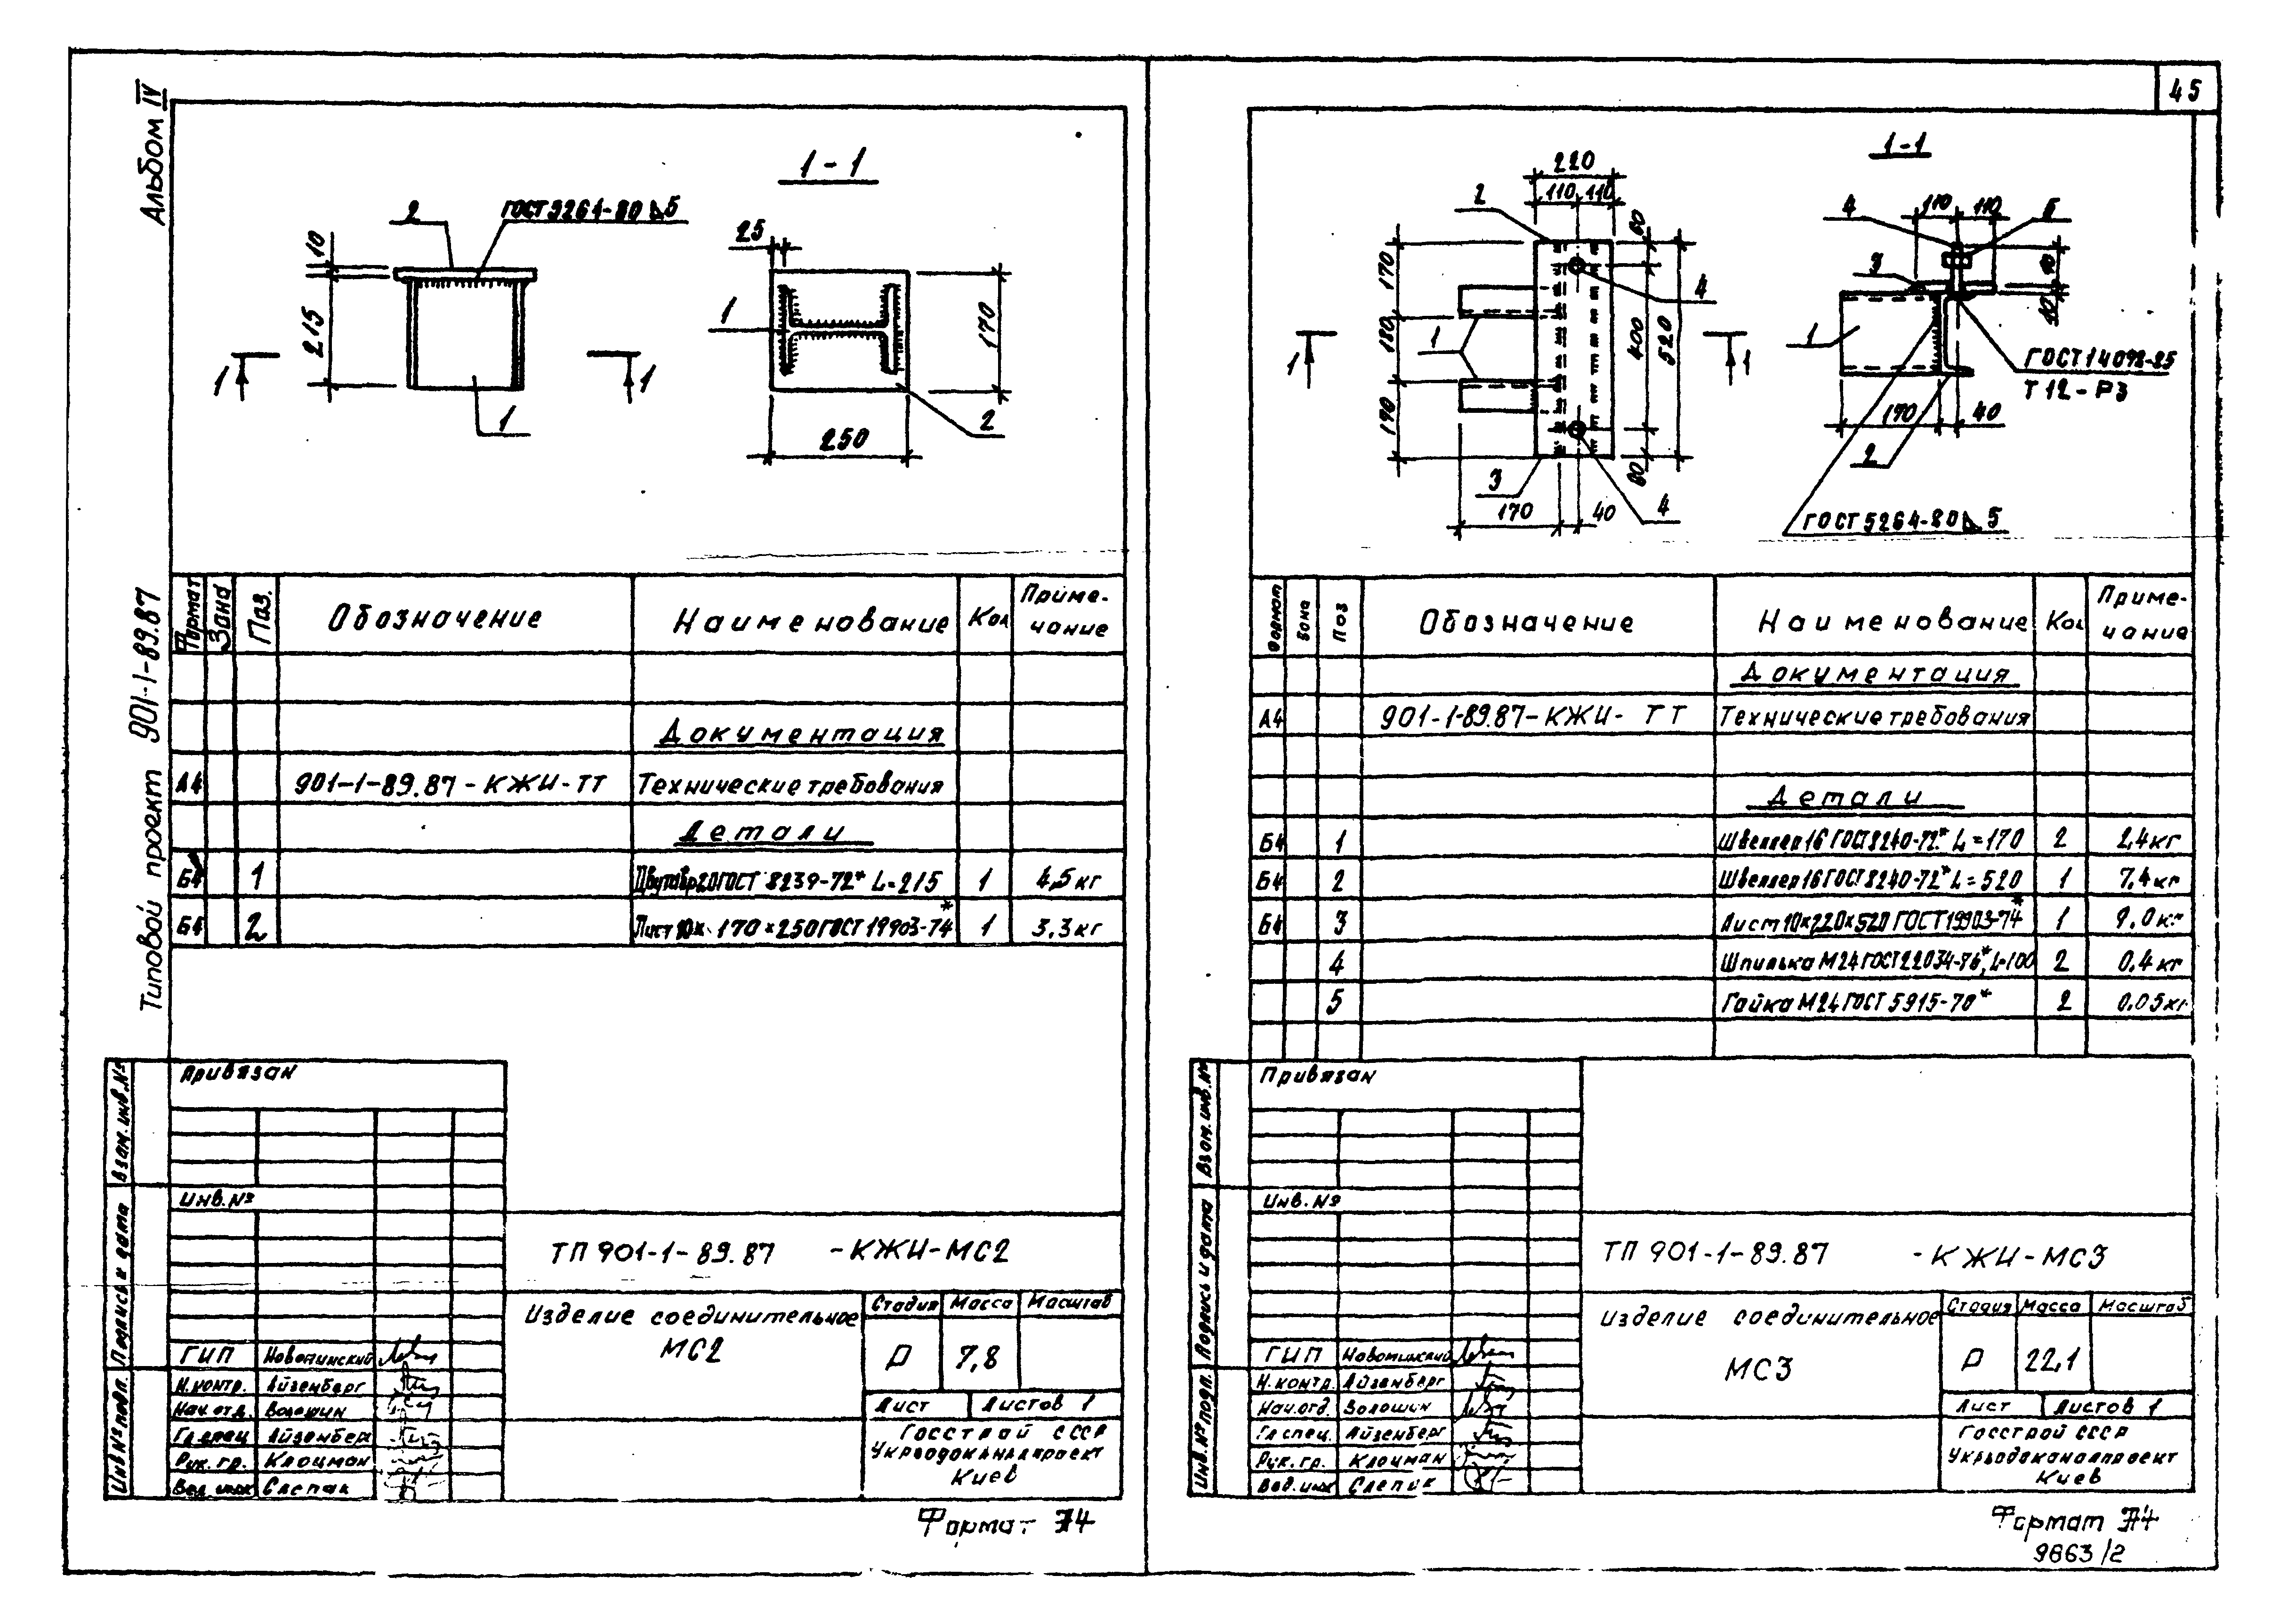 45
Альбом IV
Типовой проект 901-1-89.87
1-1
2
ГОСТ 5264-80 5
10
215
1
1
1
25
1
170
250
2
Формат
Зона
Поз.
Обозначение
Наименование
Кол
Приме-
чание
Документация
А4 901-1-89.87-КЖИ-ТТ Технические требования
Детали
Б4 1 Двутавр 20 ГОСТ 8239-72* L=215 1 4,5 кг
Б4 2 Лист 10×170×250 ГОСТ 19903-74* 1 3.3 кг
Привязан
Инв.№
Взам. инв.№
Подпись и дата
Инв.№ подл.
ТП 901-1-89.87 -КЖИ-МС2
Изделие соединительное
МС2
Стадия Масса Масштаб
Р 7,8
Лист Листов 1
Госстрой СССР
Укрводоканалпроект
Киев
ГИП Новоминский
Н.контр. Айзенберг
Нач.отд. Волошин
Гл.спец Айзенберг
Рук. гр. Клоцман
Вед. инж Слепак
Формат А4
1-1
220
110 110
2
60
170
180
170
400
520
60
4
1
1
1
3
170
40
4
4
110 110
5
3
40
10
1
ГОСТ 14098-85
Т 12-Р3
170 40
2
ГОСТ 5264-80 5
Формат
Зона
Поз
Обозначение
Наименование
Кол
Приме-
чание
Документация
А4 901-1-89.87-КЖИ- ТТ Технические требования
Детали
Б4 1 Швеллер 16 ГОСТ 8240-72* L=170 2 2,4 кг
Б4 2 Швеллер 16 ГОСТ 8240-72* L=520 1 7,4 кг
Б4 3 Лист 10×220×520 ГОСТ 19903-74* 1 9.0 кг
4 Шпилька М24 ГОСТ 22034-76*, L=100 2 0,4 кг
5 Гайка М24 ГОСТ 5915-70* 2 0.05 кг
Привязан
Инв.№
Взам. инв.№
Подпись и дата
Инв.№ подл.
ТП 901-1-89.87 -КЖИ-МС3
Изделие соединительное
МС3
Стадия Масса Масштаб
Р 22,1
Лист Листов 1
Госстрой СССР
Укрводоканалпроект
Киев
ГИП Новоминский
Н.контр. Айзенберг
Нач.отд. Волошин
Гл спец. Айзенберг
Рук. гр. Клоцман
Вед. инж Слепак
Формат А4
9863/2